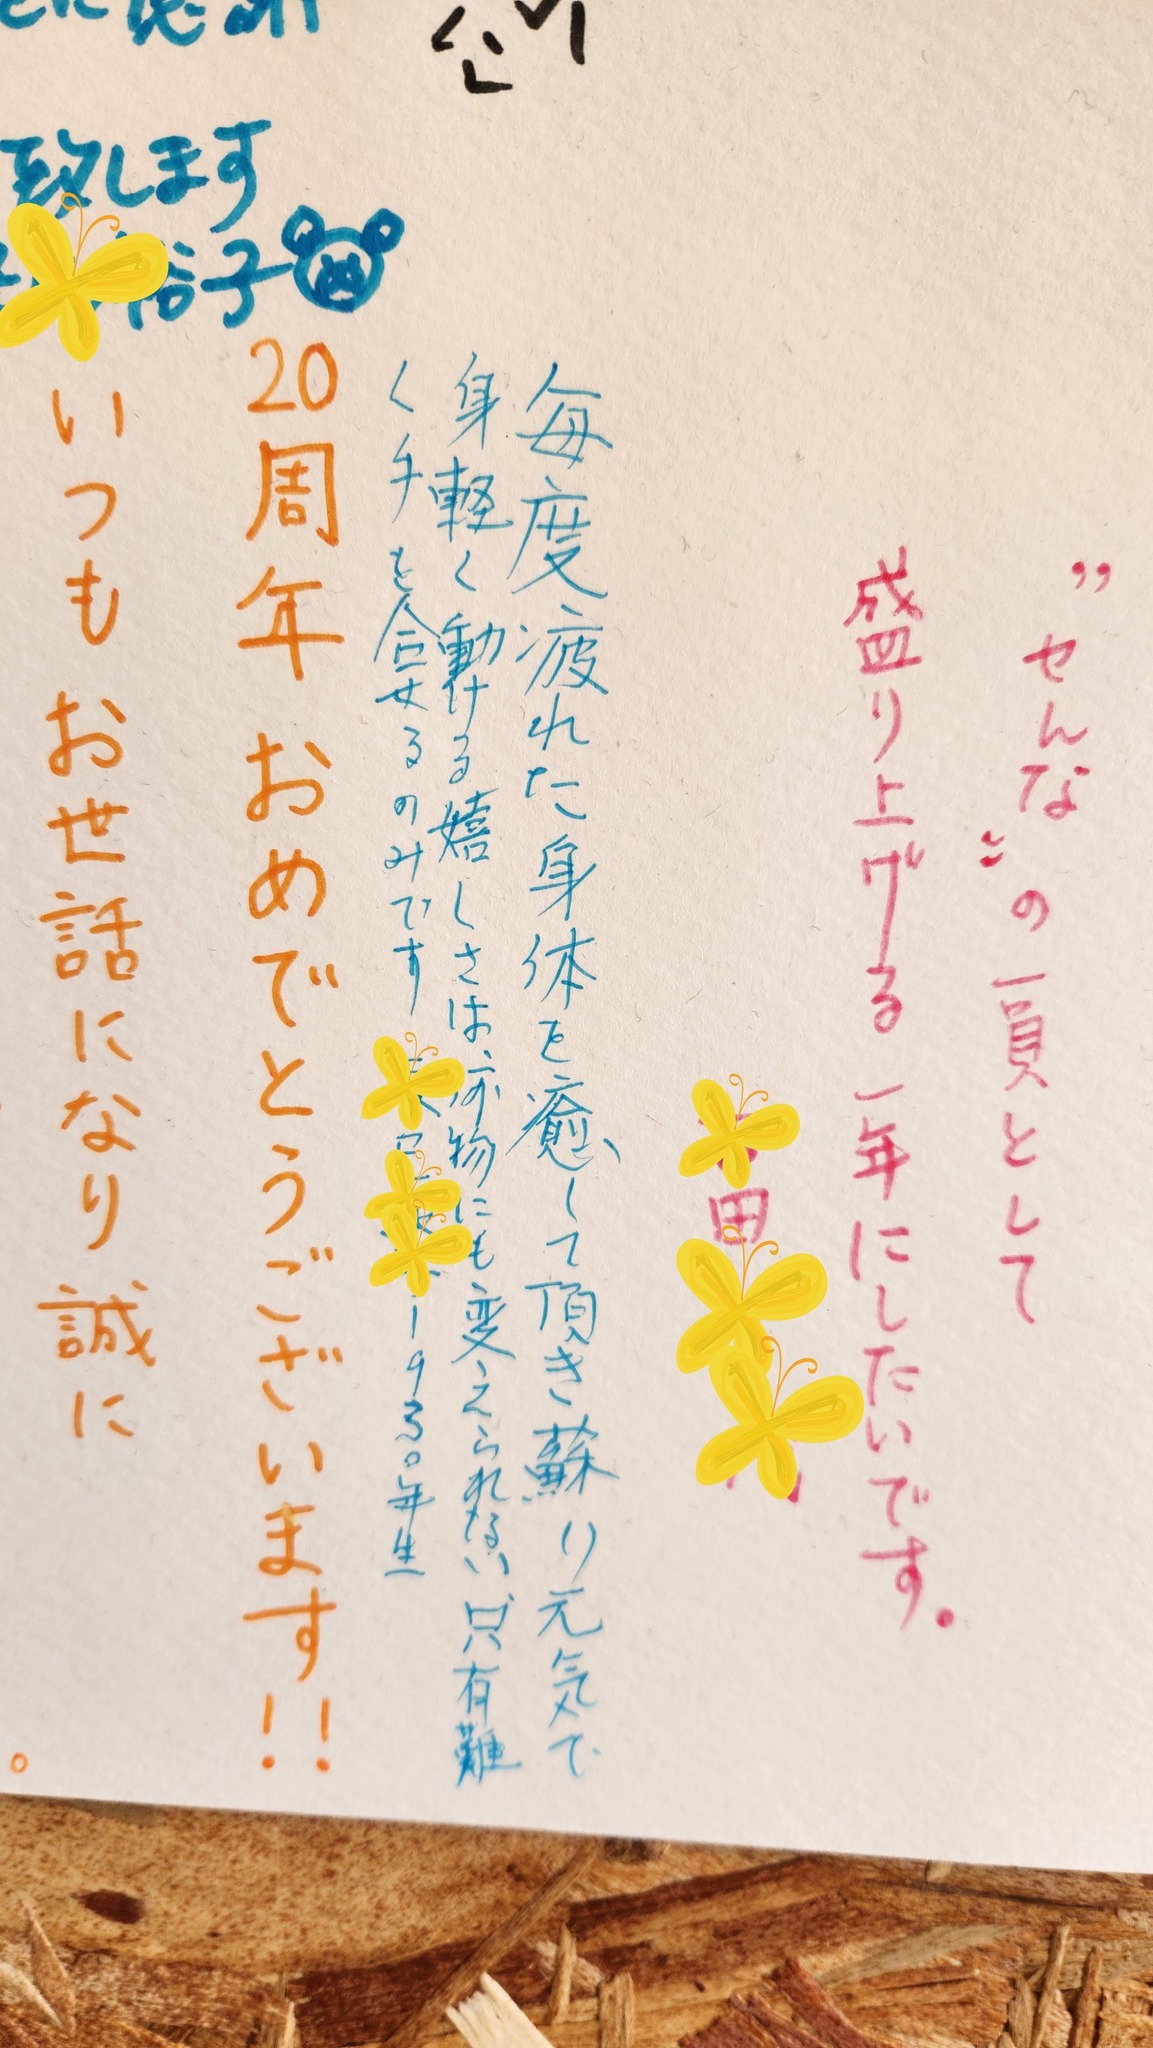 〝せんな〟の一員として
盛り上げる一年にしたいです。
田
毎度疲れた身体を癒して頂き蘇り元気で
身軽く動ける嬉しさは何物にも変えられない只有難
く手を合せるのみです
1930年生
20周年おめでとうございます!!
いつもお世話になり誠に
致します
裕子